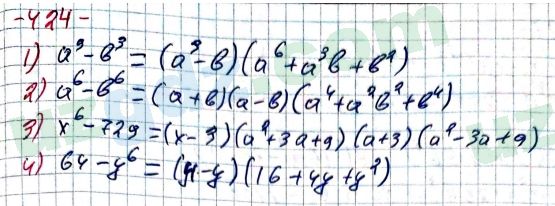 -424-
1) a⁹-b³=(a³-b)(a⁶+a³b+b²)
2) a⁶-b⁶=(a+b)(a-b)(a⁴+a²b²+b⁴)
3) x⁶-729=(x-3)(a²+3a+9)(a+3)(a²-3a+9)
4) 64-y⁶=(4-y)(16+4y+y²)